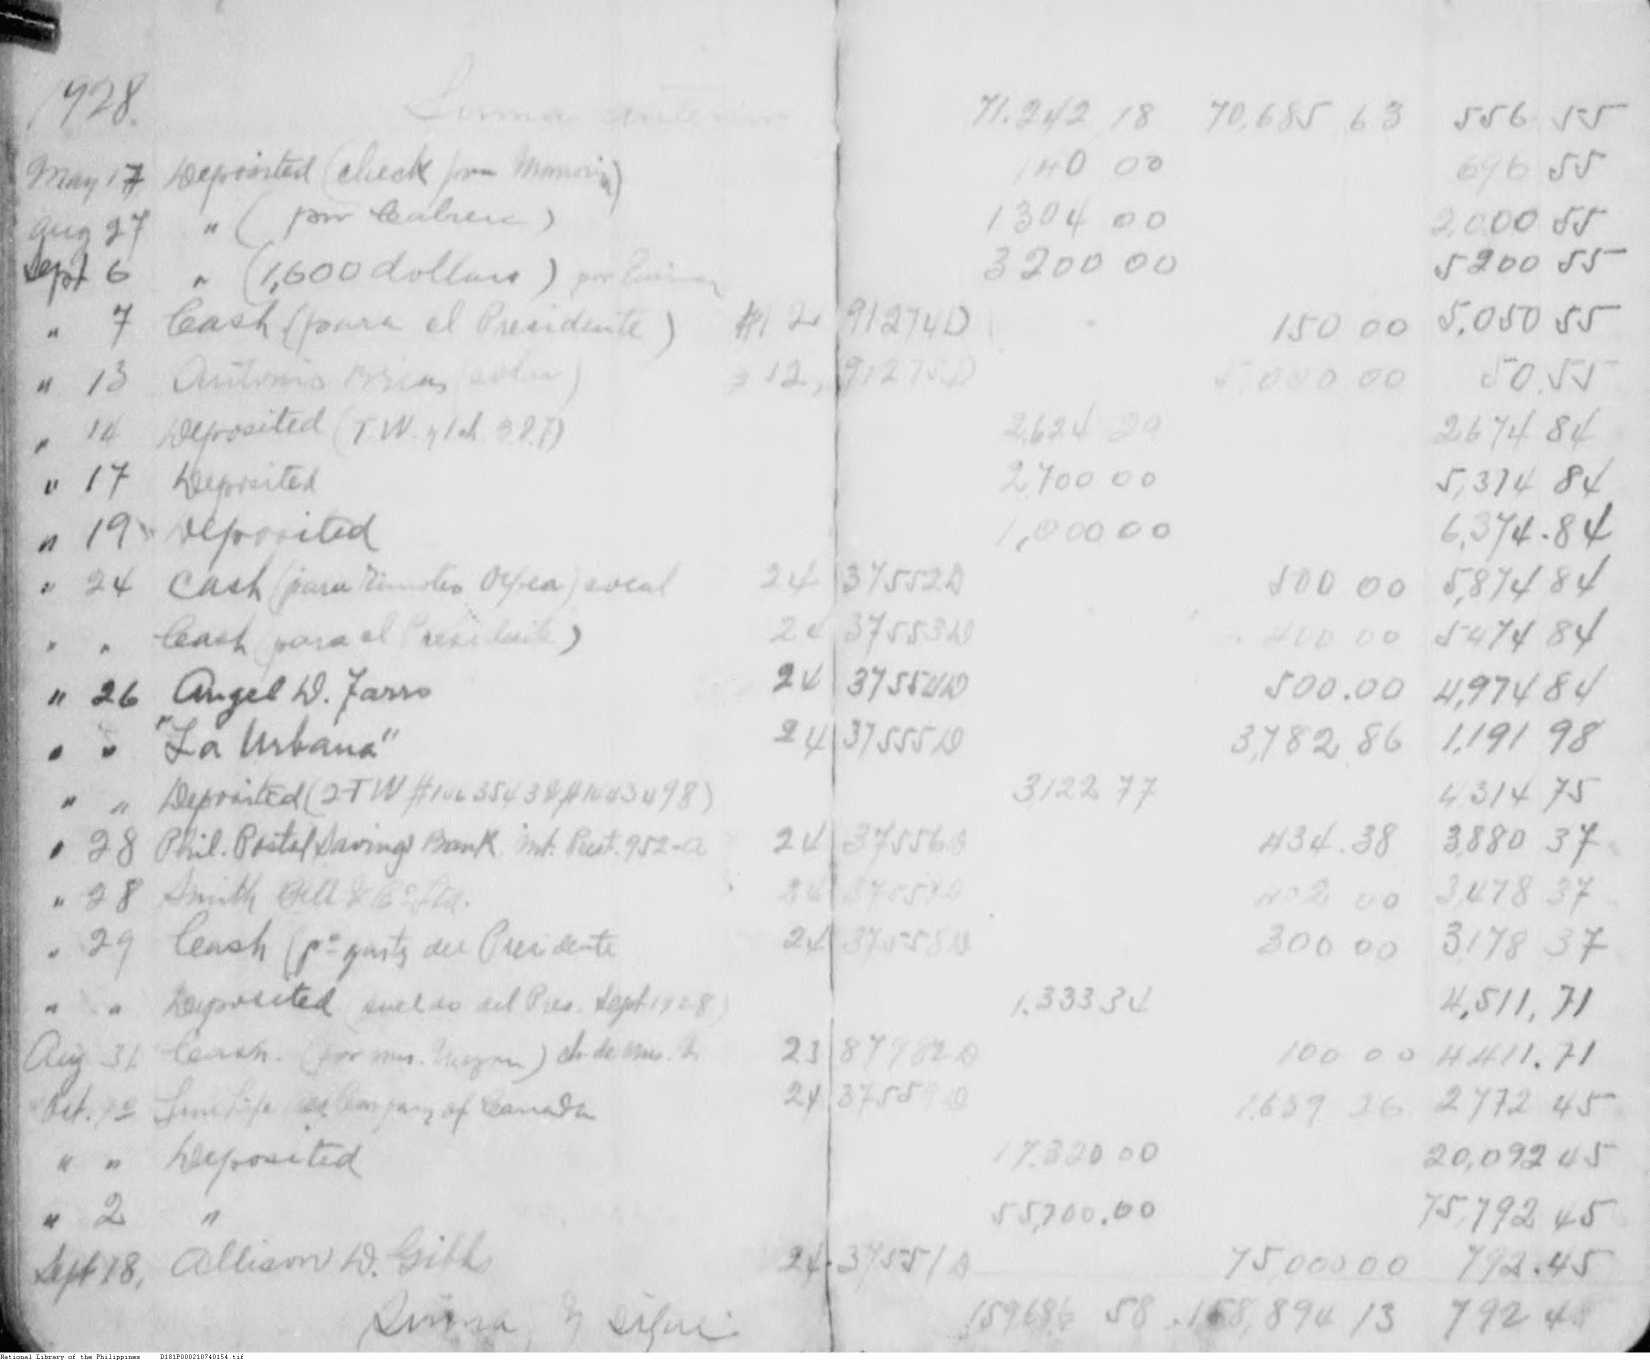 1928. Suma anterior 71.242 18 70,685 63 556 55
May 17 Deposited (check from) 140 00 696 55
Aug 27 " (por Cabrera) 1304 00 2,000 55
Sept 6 " (1,600 dollars) por 3200 00 5200 55
" 7 Cash (para el Presidente) #12 91274D 150 00 5,050 55
" 13 Antonio (solar) " 12, 91275D 5,000 00 50.55
" 14 Deposited (T.W. y ch. 2,624 29 2674 84
" 17 Deposited 2,700 00 5,374 84
" 19 Deposited 1,000 00 6,374.84
" 24 Cash (para 24 37552D 500 00 5,874 84
" " Cash (para el Presidente) 24 37553D 400 00 5474 84
" 26 Angel D. 24 37554D 500.00 4,974 84
" " "La Urbana" 24 37555D 3,782 86 1,191 98
" " Deposited (2 TW 3122 77 4314 75
" 28 Phil. Postal Savings Bank 952-A 24 37556D 434.38 3,880 37
" 28 Smith Bell & Co. Ltd. 24 37557D 402 00 3,478 37
" 29 Cash (pa gasts del Presidente 24 37558D 300 00 3,178 37
" " Deposited (sueldo del Pres. Sept. 1928) 1.333 34 4,511,71
Aug 31 Cash. (por mrs. 23 87982D 100 00 4411.71
Oct. 1o Sun Life Company of Canada 24 37559D 1.639 26 2772 45
" " Deposited 17.320 00 20,092 45
" 2 " 55,700.00 75,792 45
Sept 18, Allison D. Gibbs 24. 37551D 75,000 00 792.45
Suma y sigue 159686 58 158,894 13 792 45
National Library of the Philippines D181P000210740154.tif